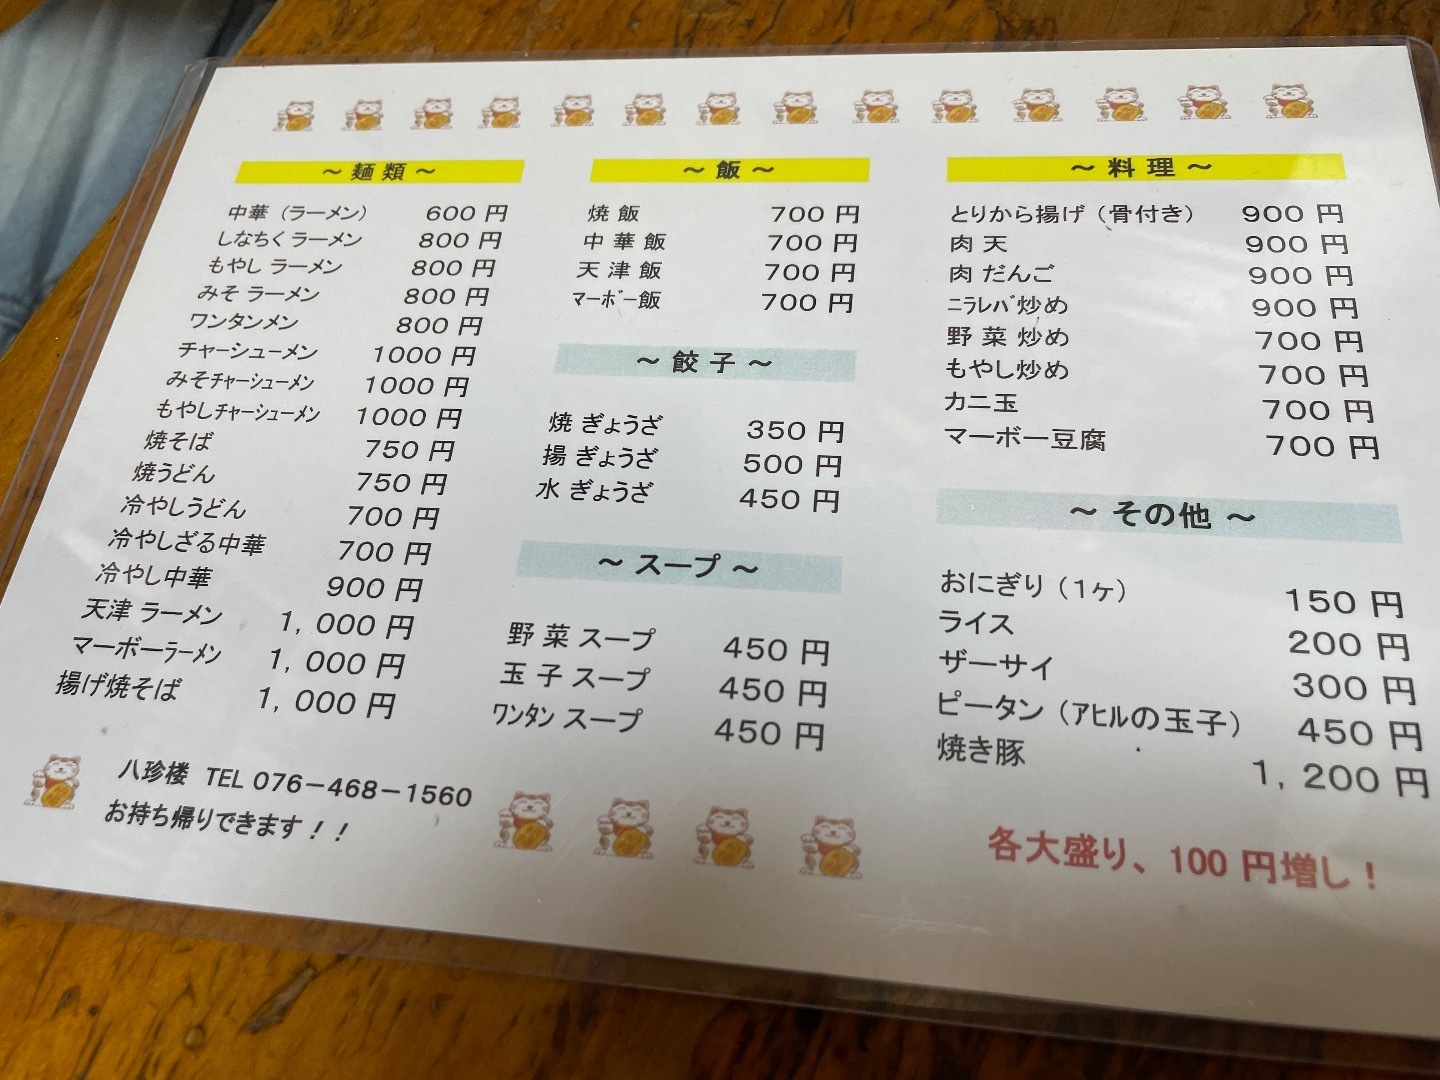 ～ 麺 類 ～
中華（ラーメン） 600 円
しなちくラーメン 800 円
もやし ラーメン 800 円
みそ ラーメン 800 円
ワンタンメン 800 円
チャーシューメン 1000 円
みそﾁｬｰｼｭｰﾒﾝ 1000 円
もやしﾁｬｰｼｭｰﾒﾝ 1000 円
焼そば 750 円
焼うどん 750 円
冷やしうどん 700 円
冷やしざる中華 700 円
冷やし中華 900 円
天津 ラーメン 1，000 円
マーボーﾗｰﾒﾝ 1，000 円
揚げ焼そば 1，000 円
～ 飯 ～
焼 飯 700 円
中 華 飯 700 円
天 津 飯 700 円
ﾏｰﾎﾞｰ飯 700 円
～ 餃 子 ～
焼 ぎょうざ 350 円
揚 ぎょうざ 500 円
水 ぎょうざ 450 円
～ スープ ～
野 菜 スープ 450 円
玉 子 スープ 450 円
ﾜﾝﾀﾝ スープ 450 円
～ 料 理 ～
とりから揚げ（骨付き） 900 円
肉 天 900 円
肉 だんご 900 円
ﾆﾗﾚﾊﾞ炒め 900 円
野 菜 炒め 700 円
もやし炒め 700 円
カニ玉 700 円
マーボー豆腐 700 円
～ その他 ～
おにぎり（1ヶ） 150 円
ライス 200 円
ザーサイ 300 円
ピータン（ｱﾋﾙの玉子） 450 円
焼き豚 1，200 円
八珍楼 TEL 076－468－1560
お持ち帰りできます！！
各大盛り、100 円増し！